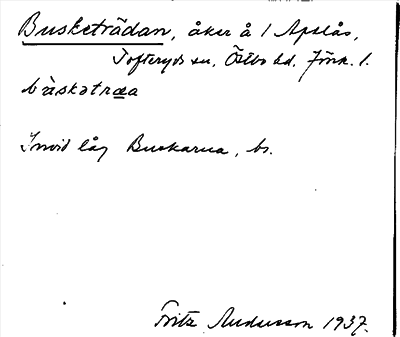 Busketrädan, åker å 1 Apslås,
Tofteryds sn, Östbo hd, Jönk. l.
bùskətræa
Invid låg Buskarna, bs.
Fritz Andersson 1937.